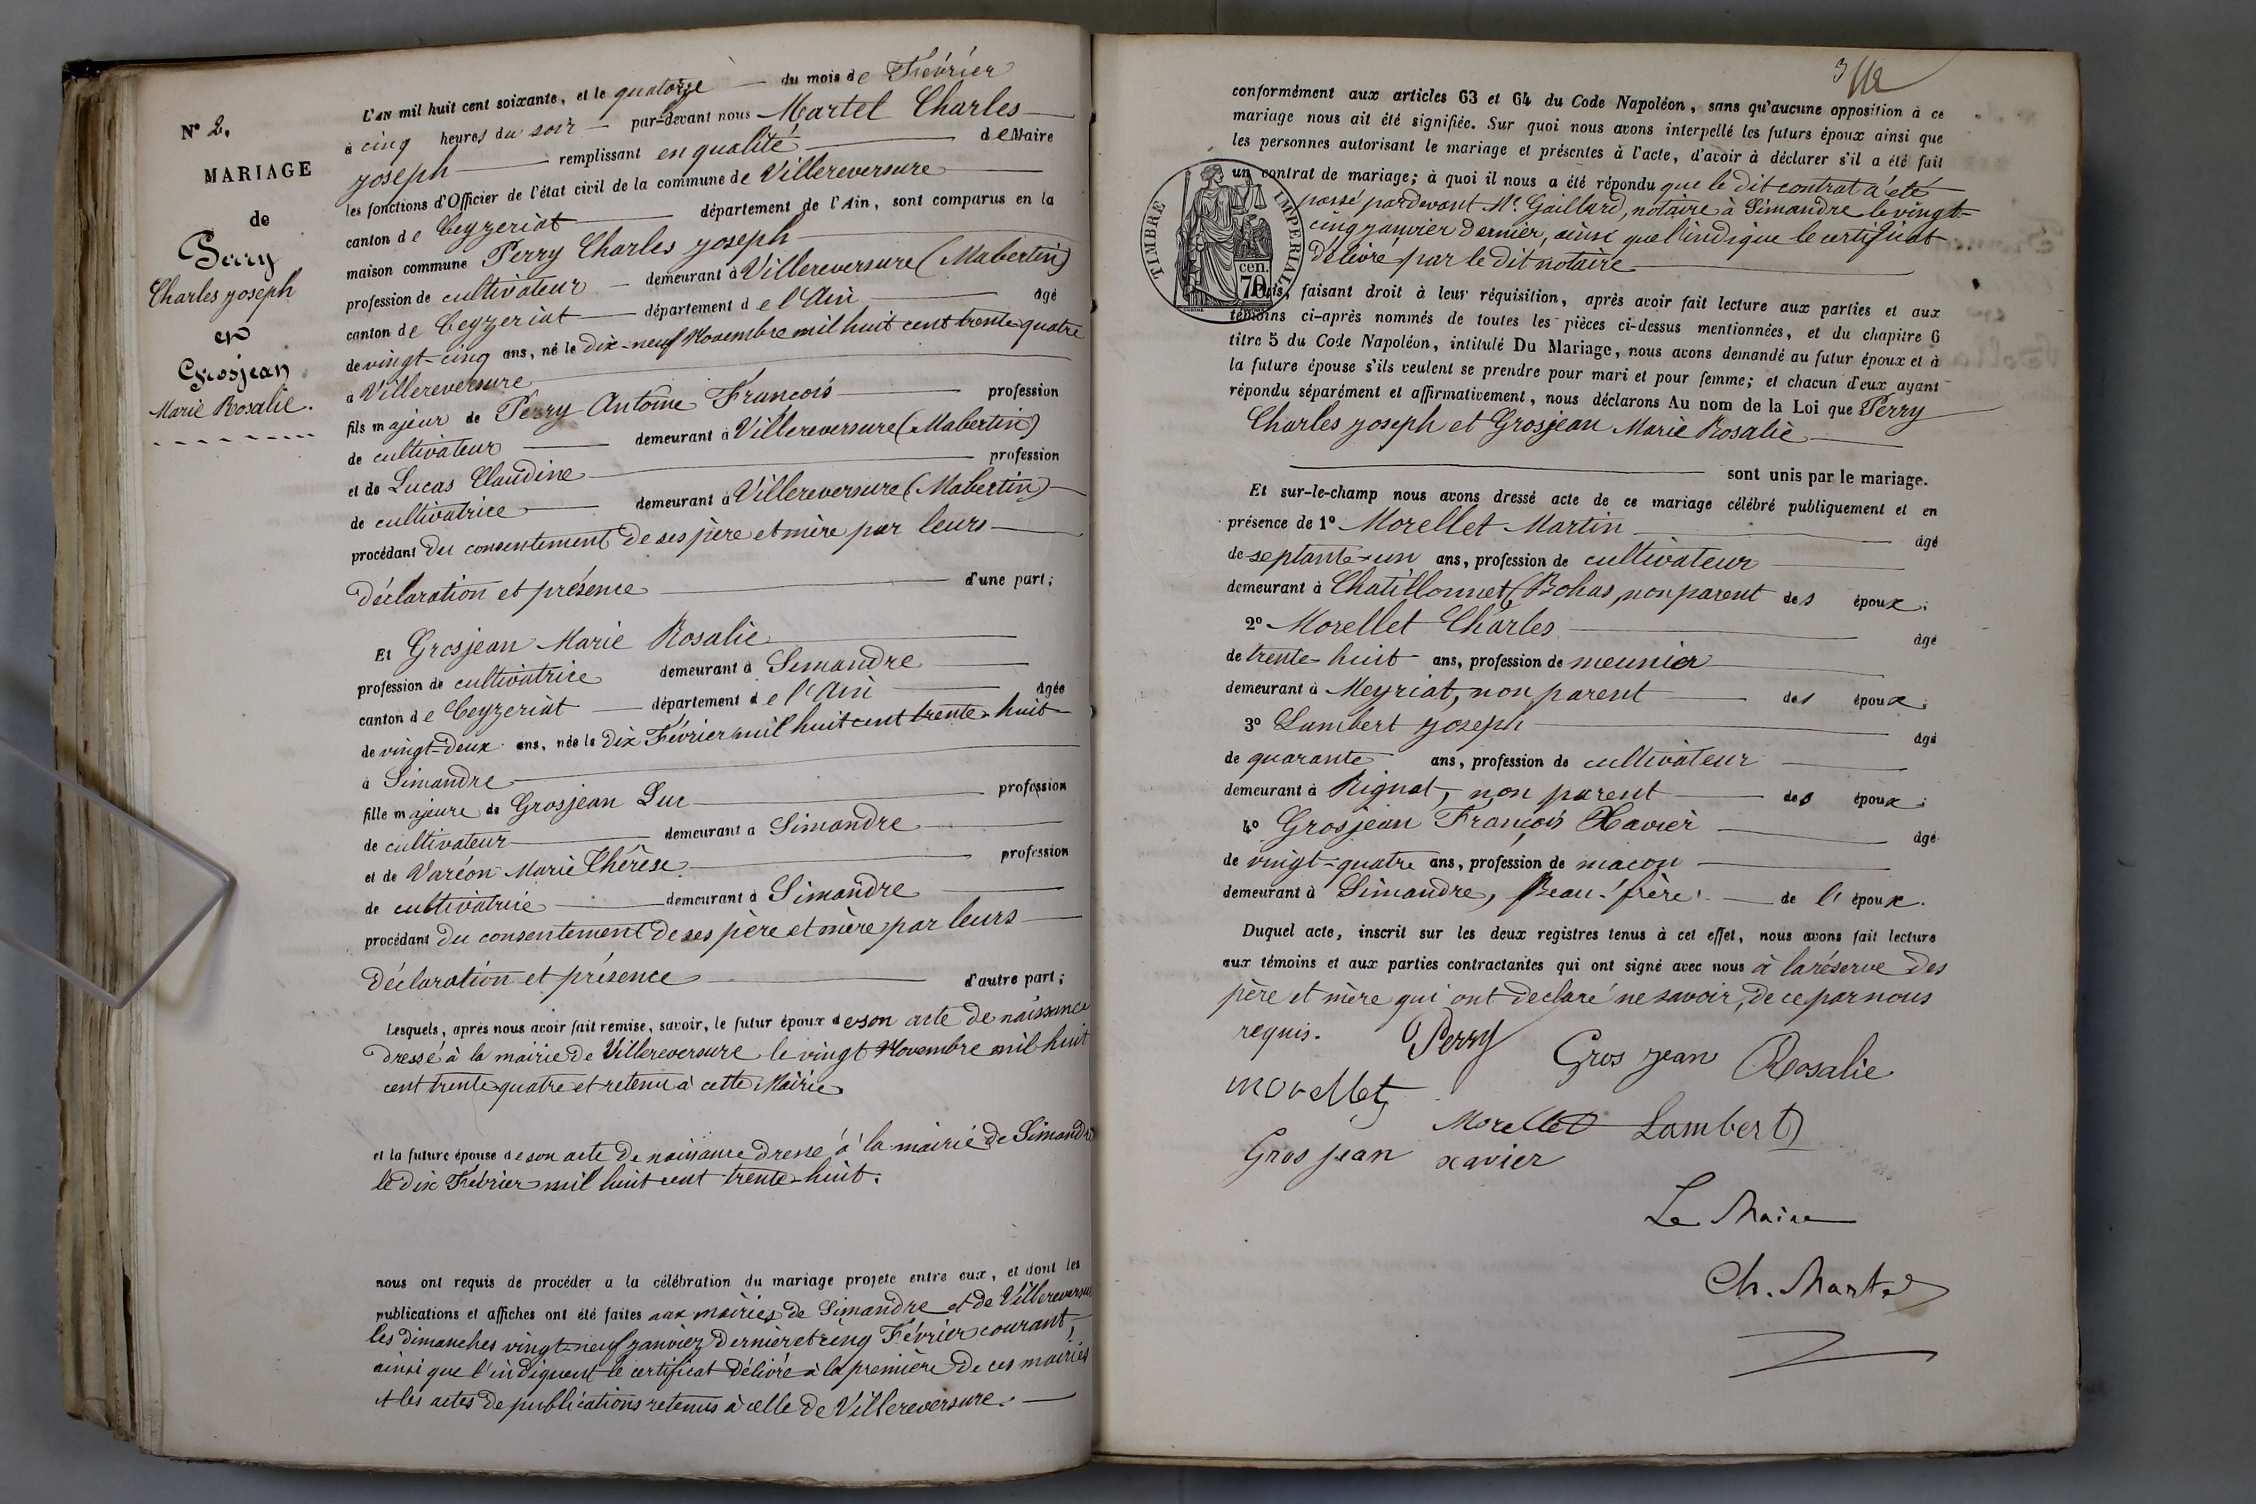 N° 2.
MARIAGE
de
Perry
Charles joseph
et
Grosjean
Marie Rosalie.
L'AN mil huit cent soixante, et le quatorze du mois de Février
à cinq heures du soir par-devant nous Martel Charles
joseph remplissant en qualité de Maire
les fonctions d'Officier de l'état civil de la commune de Villereversure
canton de Ceyzeriat département de l'Ain, sont comparus en la
maison commune Perry Charles joseph
profession de cultivateur demeurant à Villereversure (Mabertin)
canton de Ceyzeriat département de l'Ain âgé
de vingt-cinq ans, né le Dix-neuf Novembre mil huit cent trente quatre
à Villereversure
fils majeur de Perry Antoine François profession
de cultivateur demeurant à Villereversure (Mabertin)
et de Lucas Claudine profession
de cultivatrice demeurant à Villereversure (Mabertin)
procédant du consentement de ses père et mère par leurs
déclaration et présence d'une part;
Et Grosjean Marie Rosalie
profession de cultivatrice demeurant à Simandre
canton de Ceyzeriat département de l'Ain âgée
de vingt-deux ans, née le dix Février mil huit cent trente-huit
à Simandre
fille majeure de Grosjean Luc profession
de cultivateur demeurant à Simandre
et de Varéon Marie Thérèse profession
de cultivatrice demeurant à Simandre
procédant du consentement de ses père et mère par leurs
déclaration et présence d'autre part;
Lesquels, après nous avoir fait remise, savoir, le futur époux de son acte de naissance
dressé à la mairie de Villereversure le vingt Novembre mil huit
cent trente quatre et retenu à cette Mairie
et la future épouse de son acte de naissance dressé à la mairie de Simandre
le dix Février mil huit cent trente-huit.
nous ont requis de procéder à la célébration du mariage projeté entre eux, et dont les
publications et affiches ont été faites aux mairies de Simandre et de Villereversure
les dimanches vingt-neuf janvier dernier et cinq Février courant,
ainsi que l'indiquent le certificat délivré à la première de ces mairies
et les actes de publications retenus à celle de Villereversure.
conformément aux articles 63 et 64 du Code Napoléon, sans qu'aucune opposition à ce
mariage nous ait été signifiée. Sur quoi nous avons interpellé les futurs époux ainsi que
les personnes autorisant le mariage et présentes à l'acte, d'avoir à déclarer s'il a été fait
un contrat de mariage; à quoi il nous a été répondu que le dit contrat a été
passé pardevant Me. Gaillard, notaire à Simandre le vingt-
cinq janvier dernier, ainsi que l'indique le certificat
délivré par le dit notaire
TIMBRE IMPERIAL
cen.
70
Puis, faisant droit à leur réquisition, après avoir fait lecture aux parties et aux
témoins ci-après nommés de toutes les pièces ci-dessus mentionnées, et du chapitre 6
titre 5 du Code Napoléon, intitulé Du Mariage, nous avons demandé au futur époux et à
la future épouse s'ils veulent se prendre pour mari et pour femme; et chacun d'eux ayant
répondu séparément et affirmativement, nous déclarons Au nom de la Loi que Perry
Charles joseph et Grosjean Marie Rosalie
sont unis par le mariage.
Et sur-le-champ nous avons dressé acte de ce mariage célébré publiquement et en
présence de 1° Morellet Martin âgé
de septante-un ans, profession de cultivateur
demeurant à Chatillonnet, Bohas, non parent des époux;
2° Morellet Charles âgé
de trente-huit ans, profession de meunier
demeurant à Meyriat, non parent des époux;
3° Lambert joseph âgé
de quarante ans, profession de cultivateur
demeurant à Rignat, non parent des époux;
4° Grosjean François Xavier âgé
de vingt-quatre ans, profession de maçon
demeurant à Simandre, Beau-frère de l'époux.
Duquel acte, inscrit sur les deux registres tenus à cet effet, nous avons fait lecture
aux témoins et aux parties contractantes qui ont signé avec nous à la réserve des
père et mère qui ont déclaré ne savoir, de ce par nous
requis.
Perry
Gros jean Rosalie
morellet
Morellet Lambert
Gros jean xavier
Le Maire
Ch. Martel